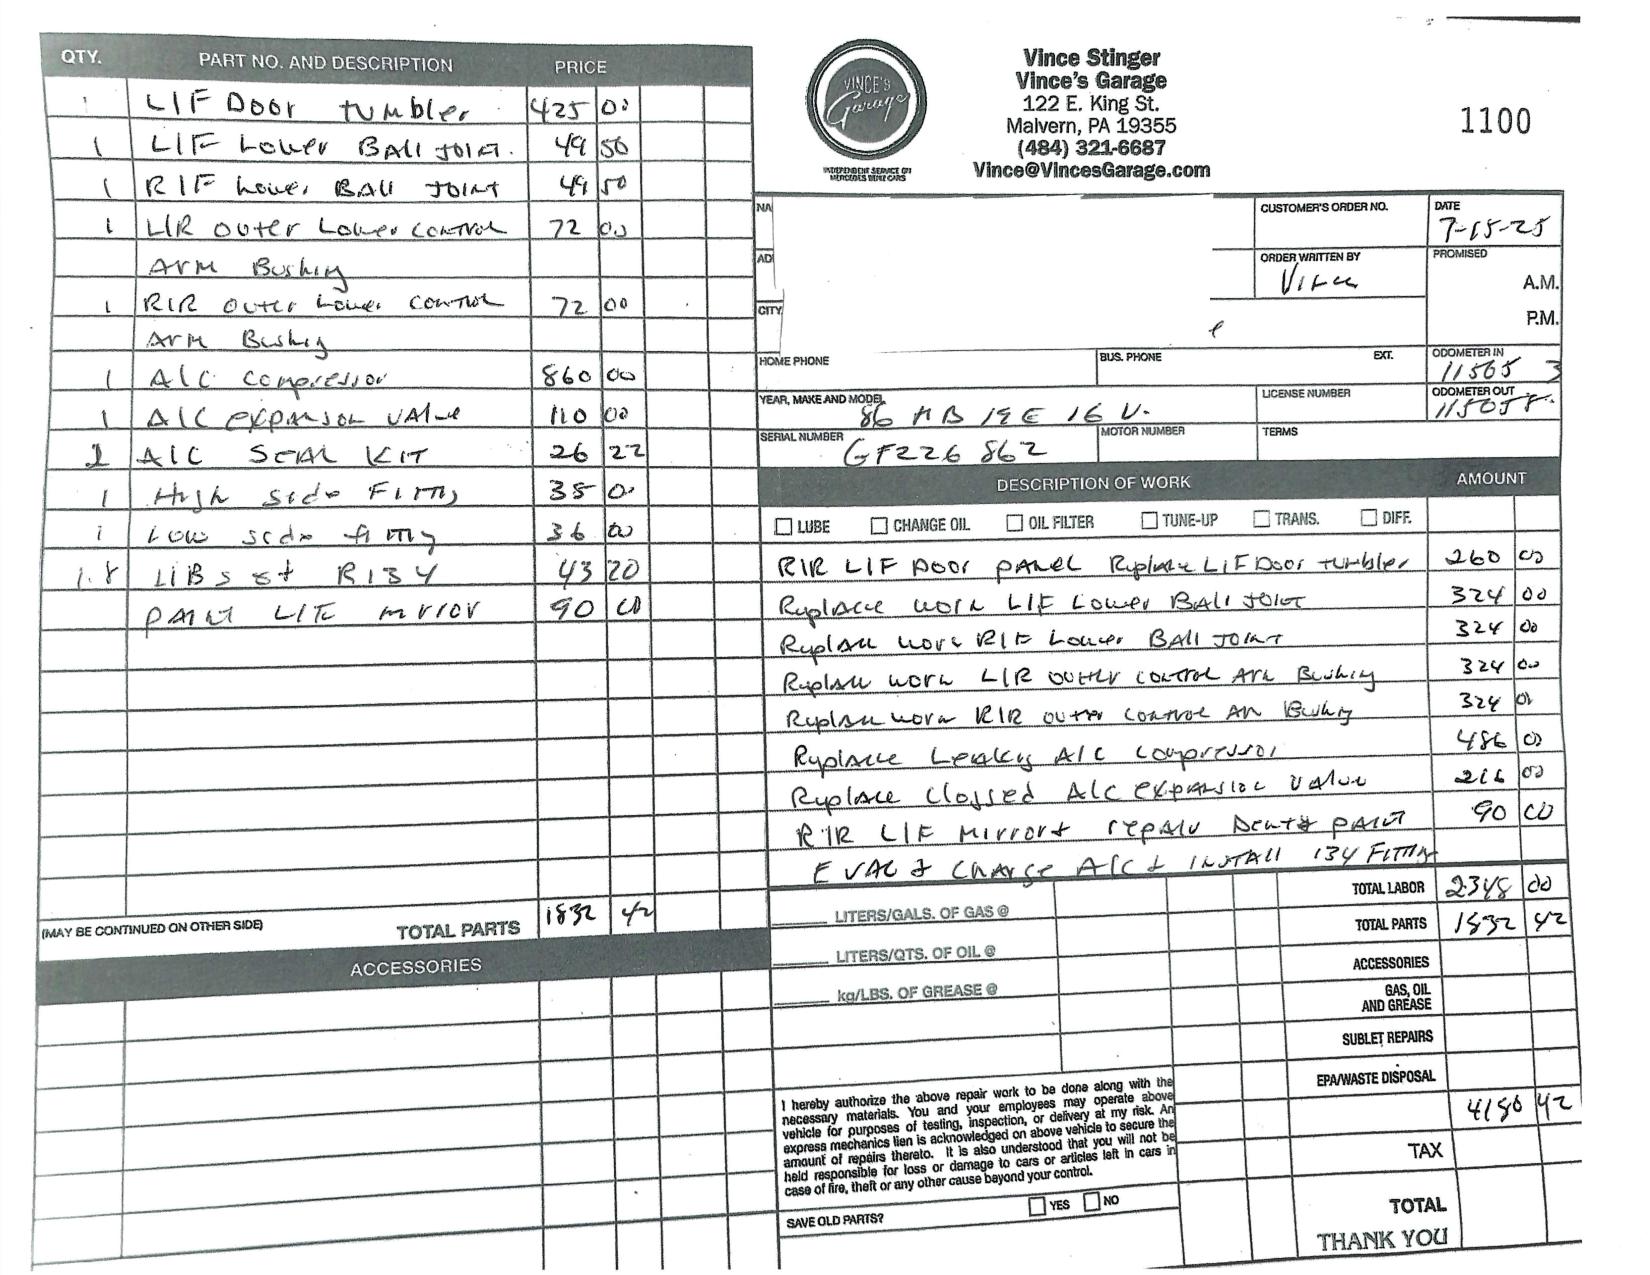 QTY. PART NO. AND DESCRIPTION PRICE
1 L/F Door tumbler 425 00
1 L/F Lower Ball Joint. 49 50
1 R/F Lower Ball Joint 49 50
1 L/R outer Lower control 72 00
Arm Bushing
1 R/R outer Lower control 72 00
Arm Bushing
1 A/C compressor 860 00
1 A/C expansion valve 110 00
1 A/C Seal Kit 26 22
1 High side Fitting 00
1 Low side fitting 36 00
1.8 LIBs of R134 43 20
paint L/F mirror 90 00
(MAY BE CONTINUED ON OTHER SIDE) TOTAL PARTS 1832 42
ACCESSORIES
VINCE'S
Garage
INDEPENDENT SERVICE ON
MERCEDES BENZ CARS
Vince Stinger
Vince's Garage
122 E. King St.
Malvern, PA 19355
(484) 321-6687
Vince@VincesGarage.com
1100
NA
CUSTOMER'S ORDER NO.
DATE
7-15-25
AD
ORDER WRITTEN BY
Vince
PROMISED
A.M.
P.M.
CITY
HOME PHONE
BUS. PHONE EXT.
ODOMETER IN
11565 3
YEAR, MAKE AND MODEL
86 MB 19E 16 V.
LICENSE NUMBER
ODOMETER OUT
115058
SERIAL NUMBER
GF226862
MOTOR NUMBER
TERMS
DESCRIPTION OF WORK AMOUNT
LUBE CHANGE OIL OIL FILTER TUNE-UP TRANS. DIFF.
R/R L/F Door panel Replace L/F Door tumbler 260 00
Replace worn L/F Lower Ball Joint 324 00
Replace worn R/F Lower Ball Joint 324 00
Replace worn L/R outer control Arm Bushing 324 00
Replace worn R/R outer control Arm Bushing 324 00
Replace Leaking A/C compressor 486 00
Replace Clogged A/C expansion valve 216 00
R/R L/F Mirror & repair Dent & paint 90 00
EVAC & Charge A/C & INSTALL 134 Fitting
TOTAL LABOR 2348 00
LITERS/GALS. OF GAS @
TOTAL PARTS 1832 42
LITERS/QTS. OF OIL @
ACCESSORIES
kg/LBS. OF GREASE @
GAS, OIL
AND GREASE
SUBLET REPAIRS
EPA/WASTE DISPOSAL
4180 42
I hereby authorize the above repair work to be done along with the
necessary materials. You and your employees may operate above
vehicle for purposes of testing, inspection, or delivery at my risk. An
express mechanics lien is acknowledged on above vehicle to secure the
amount of repairs thereto. It is also understood that you will not be
held responsible for loss or damage to cars or articles left in cars in
case of fire, theft or any other cause beyond your control.
TAX
SAVE OLD PARTS? YES NO
TOTAL
THANK YOU